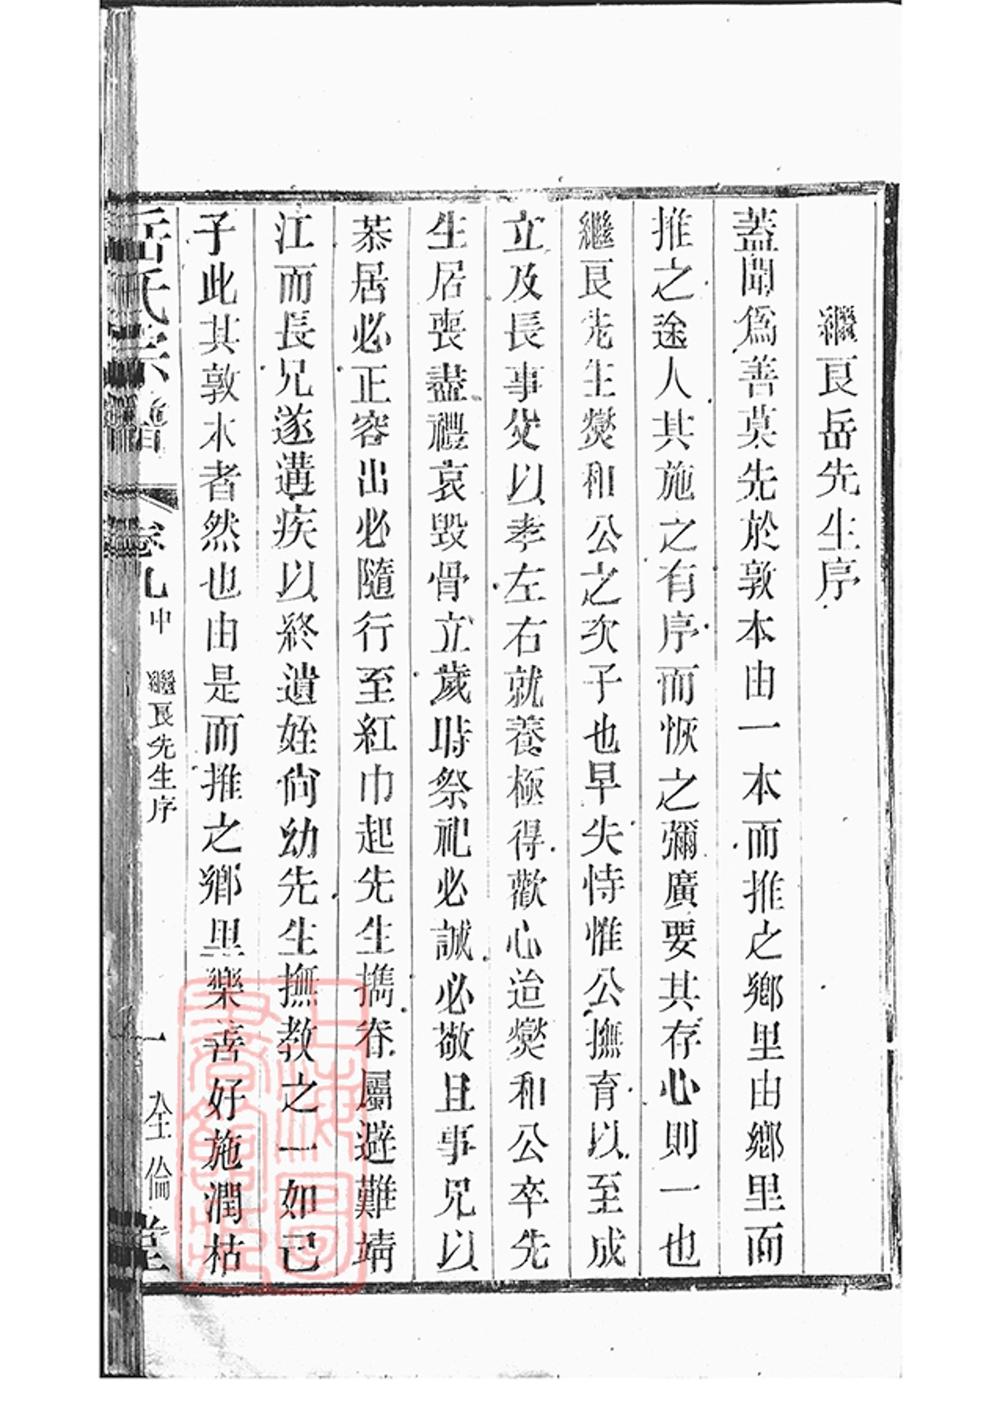 繼良岳先生序
蓋聞爲善莫先於敦本由一本而推之鄉里由鄉里而
推之途人其施之有序而恢之彌廣要其存心則一也
繼良先生爕和公之次子也早失恃惟公撫育以至成
立及長事父以孝左右就養極得歡心迨爕和公卒先
生居喪盡禮哀毀骨立歲時祭祀必誠必敬且事兄以
恭居必正容出必隨行至紅巾起先生攜眷屬避難靖
江而長兄遂遘疾以終遺姪尙幼先生撫教之一如已
子此其敦本者然也由是而推之鄉里樂善好施潤枯
岳氏宗譜
卷九
中
繼良先生序
一
全倫堂
上海圖書館藏